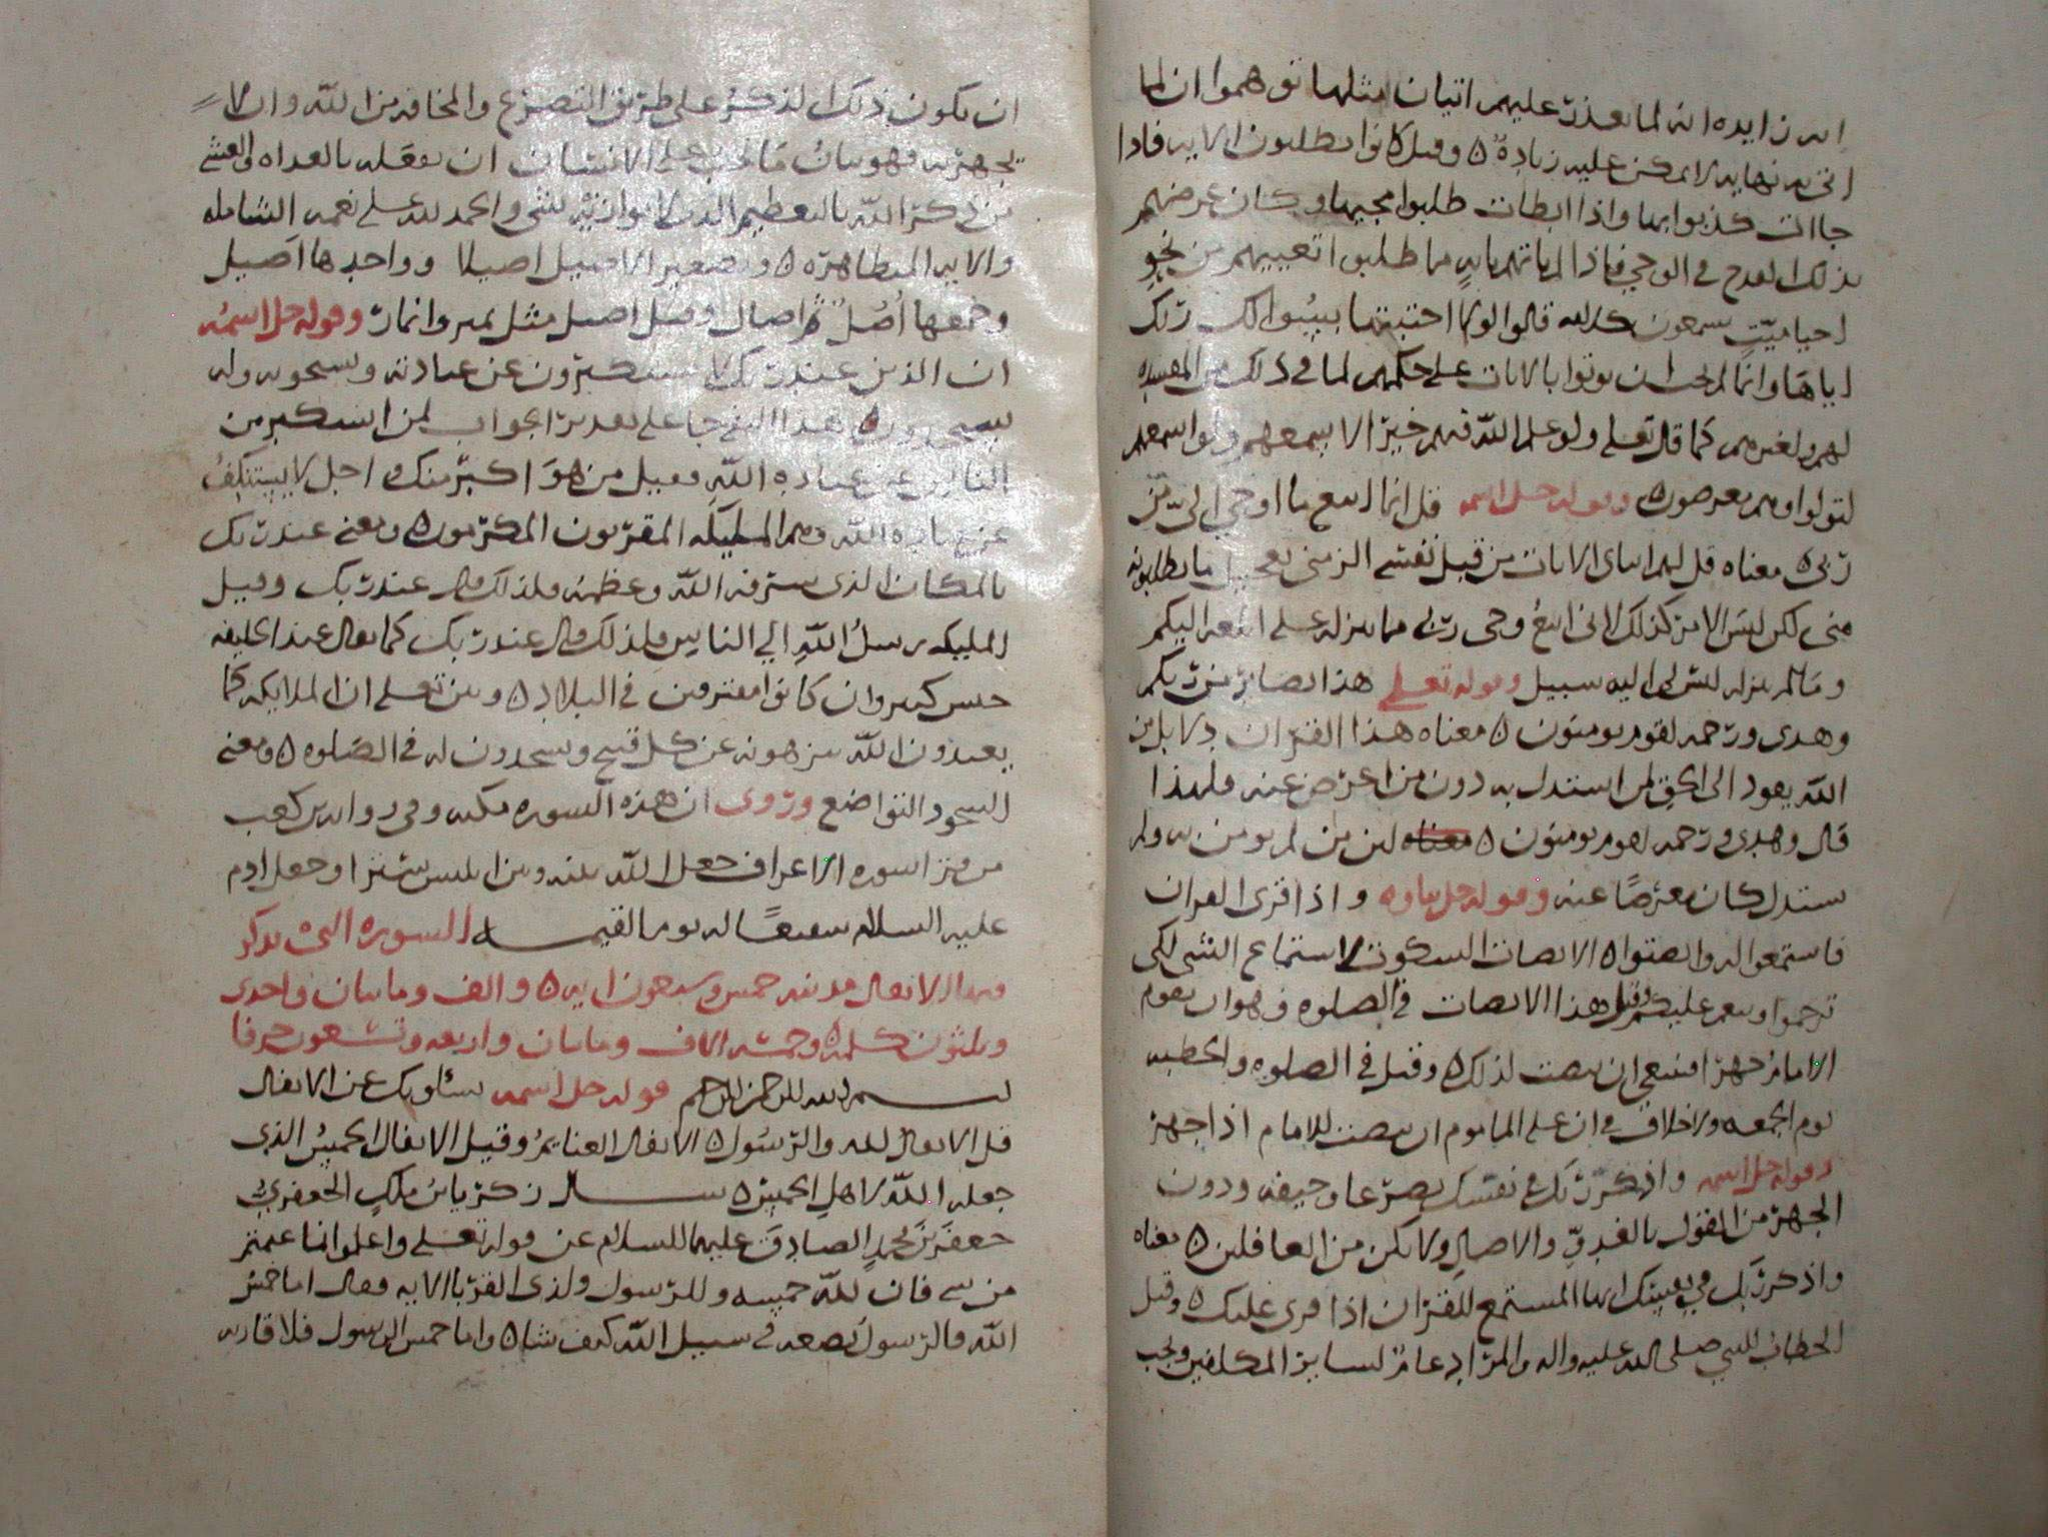 اىه زايده انه لما تعذرت عليهم اتيان مثلها توهموا ان لما
اتى به نهايه لا يمكن عليه زيادة ٥ وقيل كانوا يطلبون الايه فاذا
جاات كذبوا بها واذا ابطات طلبوا مجيها وكان غرضهم
بذلك القدح في الوحي فاذا لم ياتهم بايه مما طلبوا تعييهم من نحو
احيا ميت يسمعون كلامه قالوا لولا اجتبيتها يبينوا لك ربك
اياها وانما لم يوتوا بالايات على حكمهم لما في ذلك من المفسده
لهم ولغيرهم كما قال تعلى ولو علم الله فيهم خيرا لاسمعهم ولو اسمعهم
لتولوا وهم معرضون ٥ وقوله جل اسمه قل انما اتبع ما اوحي الي من
ربي ٥ معناه قل لهم اتياني الايات من قبل نفسي الزمني تعجيل ما يطلبونه
مني لكن ليس الامر كذلك لاني اتبع وحي ربي مما ينزله علي اتبعه اليكم
وما لم ينزله ليس لي اليه سبيل وقوله تعلى هذا بصاير من ربكم
وهدى ورحمه لقوم يومنون ٥ معناه هذا القران دلايل من
الله يعود الى الحق لمن استدل به دون من اعرض عنه فلهذا
قال وهدى ورحمه لقوم يومنون ٥ معناه لان من لم يومن به ولم
يستدل كان معرضا عنه وقوله جل ثناوه واذا قرى القران
فاستمعوا له وانصتوا ٥ الانصات السكوت لاستماع الشي لكي
ترحموا ونعم عليكم وقيل هذا الانصات في الصلوه وهو ان يقوم
الامام جهرا فينبغي ان ينصت لذلك ٥ وقيل في الصلوه والخطبه
يوم الجمعه ولا خلاف في ان على الماموم ان ينصت للامام اذا جهر
وقوله جل اسمه واذكر ربك في نفسك تضرعا وخيفه ودون
الجهر من القول بالغدو والاصال ولا تكن من الغافلين ٥ معناه
واذكر ربك في نفسك ايها المستمع للقران اذا قرى عليك ٥ وقيل
الخطاب للنبي صلى الله عليه واله والمراد عام لساير المكلفين ويجب
ان يكون ذلك الذكر على طريق التضرع والمخافه من الله وان لا
يجهر به فهو بيان ما يجب على الانسان ان يفعله بالغداه والعشي
من ذكر الله بالتعظيم الذي لا يوازنه شي والحمد لله على نعمه الشامله
والايه المتظاهره ٥ وتصغير الاصيل اصيلا وواحدها اصيل
وجمعها اصل ثم اصال وقيل اصيل مثل يمين وايمان وقوله جل اسمه
ان الذين عند ربك لا يستكبرون عن عبادته ويسبحونه وله
يسجدون ٥ هذا النفي جا على تقدير الجواب لمن استكبر من
الناس عن عباده الله فقيل من هو اكبر منك واجل لا يستنكف
عن عباده الله وهم المليكه المقربون المكرمون ٥ ومعنى عند ربك
بالمكان الذي شرفه الله وعظمه فلذلك قال عند ربك وقيل
المليكه رسل الله الي الناس فلذلك قال عند ربك كما يقال عند الخليفه
جيش كبير وان كانوا مفترقين في البلاد ٥ وبين تعلى ان الملايكه كما
يعبدون الله ينزهونه عن كل قبيح ويسجدون له في الصلوه ٥ ومعنى
السجود التواضع وروى ان هذه السوره مكيه وفي روايه بن كعب
من قرا سوره الاعراف جعل الله بينه وبين ابليس سترا وجعل ادم
عليه السلام شفيعا له يوم القيمه السوره التى يذكر
فيها الانفال مدنيه خمس وسبعون ايه ٥ والف ومايتان واحدى
وثلثون كلمه ٥ وخمسه الاف ومايتان واربعه وتسعون حرفا
بسم الله الرحمن الرحيم قوله جل اسمه يسئلونك عن الانفال
قل الانفال لله والرسول ٥ الانفال الغنايم وقيل الانفال الخمس الذي
جعله الله لاهل الخمس ٥ سال زكريا بن ملك الجعفري
جعفر بن محمد الصادق عليهما السلام عن قوله تعلى واعلموا انما غنمتم
من شي فان لله خمسه وللرسول ولذى القربا الايه فقال اما خمس
الله فالرسول يضعه في سبيل الله كيف شا ٥ واما خمس الرسول فلاقاربه